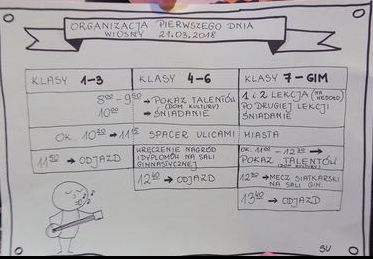 ORGANIZACJA PIERWSZEGO DNIA
WIOSNY 21.03.2018
KLASY 1-3
KLASY 4-6
KLASY 7-GIM
8⁰⁰-9⁵⁰ → POKAZ TALENTÓW
(DOM KULTURY)
10⁰⁰ → ŚNIADANIE
1 i 2 LEKCJA (NA WESOŁO)
PO DRUGIEJ LEKCJI
ŚNIADANIE
OK. → 11¹⁵ SPACER ULICAMI MIASTA
→ ODJAZD
WRĘCZENIE NAGRÓD
I DYPLOMÓW NA SALI
GIMNASTYCZNEJ
12⁴⁰ → ODJAZD
OK. 11⁰⁰ - →
POKAZ TALENTÓW
(DOM KULTURY)
→ MECZ SIATKARSKI
NA SALI GIM.
13⁴⁰ → ODJAZD
SU